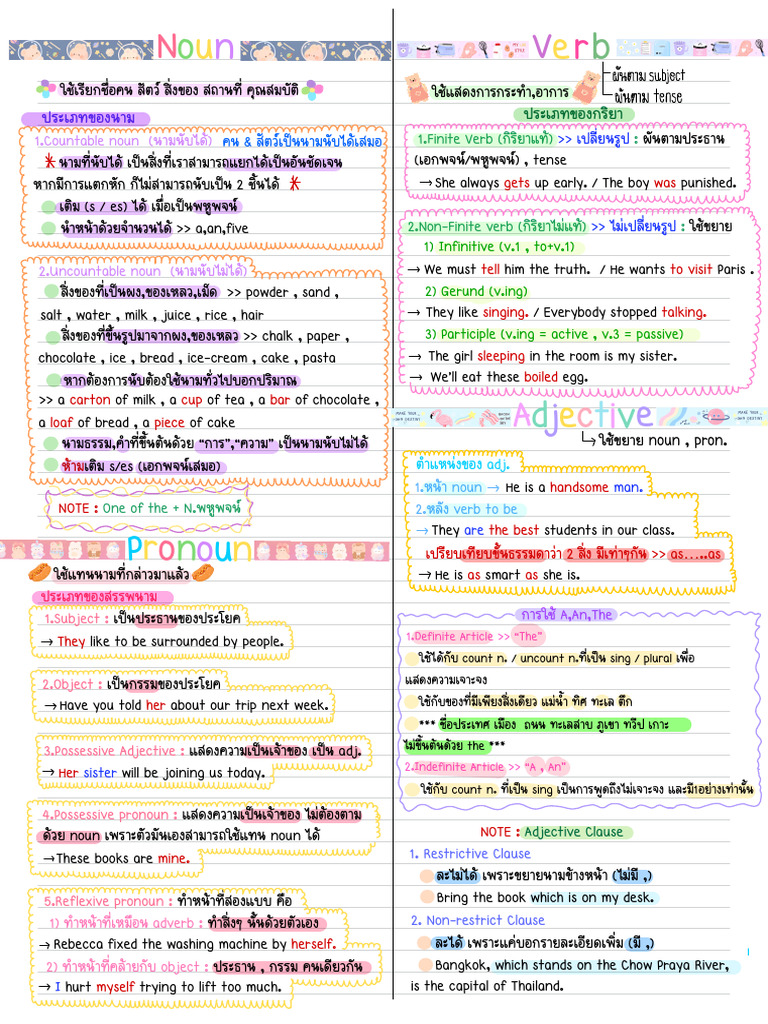 Noun
ใช้เรียกชื่อคน สัตว์ สิ่งของ สถานที่ คุณสมบัติ
ประเภทของนาม
1.Countable noun (นามนับได้) คน & สัตว์เป็นนามนับได้เสมอ
นามที่นับได้ เป็นสิ่งที่เราสามารถแยกได้เป็นอันชัดเจน
หากมีการแตกหัก ก็ไม่สามารถนับเป็น 2 ชิ้นได้
เติม (s / es) ได้ เมื่อเป็นพหูพจน์
นำหน้าด้วยจำนวนได้ >> a,an,five
2.Uncountable noun (นามนับไม่ได้)
สิ่งของที่เป็นผง,ของเหลว,เม็ด >> powder , sand ,
salt , water , milk , juice , rice , hair
สิ่งของที่ขึ้นรูปมาจากผง,ของเหลว >> chalk , paper ,
chocolate , ice , bread , ice-cream , cake , pasta
หากต้องการนับต้องใช้นามทั่วไปบอกปริมาณ
>> a carton of milk , a cup of tea , a bar of chocolate ,
a loaf of bread , a piece of cake
นามธรรม,คำที่ขึ้นต้นด้วย “การ”,“ความ” เป็นนามนับไม่ได้
ห้ามเติม s/es (เอกพจน์เสมอ)
NOTE : One of the + N.พหูพจน์
Pronoun
ใช้แทนนามที่กล่าวมาแล้ว
ประเภทของสรรพนาม
1.Subject : เป็นประธานของประโยค
→ They like to be surrounded by people.
2.Object : เป็นกรรมของประโยค
→ Have you told her about our trip next week.
3.Possessive Adjective : แสดงความเป็นเจ้าของ เป็น adj.
→ Her sister will be joining us today.
4.Possessive pronoun : แสดงความเป็นเจ้าของ ไม่ต้องตาม
ด้วย noun เพราะตัวมันเองสามารถใช้แทน noun ได้
→ These books are mine.
5.Reflexive pronoun : ทำหน้าที่สองแบบ คือ
1) ทำหน้าที่เหมือน adverb : ทำสิ่งๆ นั้นด้วยตัวเอง
→ Rebecca fixed the washing machine by herself.
2) ทำหน้าที่คล้ายกับ object : ประธาน , กรรม คนเดียวกัน
→ I hurt myself trying to lift too much.
Verb
ใช้แสดงการกระทำ,อาการ
ผันตาม subject
ผันตาม tense
ประเภทของกริยา
1.Finite Verb (กิริยาแท้) >> เปลี่ยนรูป : ผันตามประธาน
(เอกพจน์/พหูพจน์) , tense
→ She always gets up early. / The boy was punished.
2.Non-Finite verb (กิริยาไม่แท้) >> ไม่เปลี่ยนรูป : ใช้ขยาย
1) Infinitive (v.1 , to+v.1)
→ We must tell him the truth. / He wants to visit Paris .
2) Gerund (v.ing)
→ They like singing. / Everybody stopped talking.
3) Participle (v.ing = active , v.3 = passive)
→ The girl sleeping in the room is my sister.
→ We’ll eat these boiled egg.
Adjective
ใช้ขยาย noun , pron.
ตำแหน่งของ adj.
1.หน้า noun → He is a handsome man.
2.หลัง verb to be
→ They are the best students in our class.
เปรียบเทียบขั้นธรรมดาว่า 2 สิ่ง มีเท่าๆกัน >> as.....as
→ He is as smart as she is.
การใช้ A,An,The
1.Definite Article >> “The”
ใช้ได้กับ count n. / uncount n.ที่เป็น sing / plural เพื่อ
แสดงความเจาะจง
ใช้กับของที่มีเพียงสิ่งเดียว แม่น้ำ ทิศ ทะเล ตึก
*** ชื่อประเทศ เมือง ถนน ทะเลสาบ ภูเขา ทวีป เกาะ
ไม่ขึ้นต้นด้วย the ***
2.Indefinite Article >> “A , An”
ใช้กับ count n. ที่เป็น sing เป็นการพูดถึงไม่เจาะจง และมี1อย่างเท่านั้น
NOTE : Adjective Clause
1. Restrictive Clause
ละไม่ได้ เพราะขยายนามข้างหน้า (ไม่มี ,)
Bring the book which is on my desk.
2. Non-restrict Clause
ละได้ เพราะแค่บอกรายละเอียดเพิ่ม (มี ,)
Bangkok, which stands on the Chow Praya River,
is the capital of Thailand.